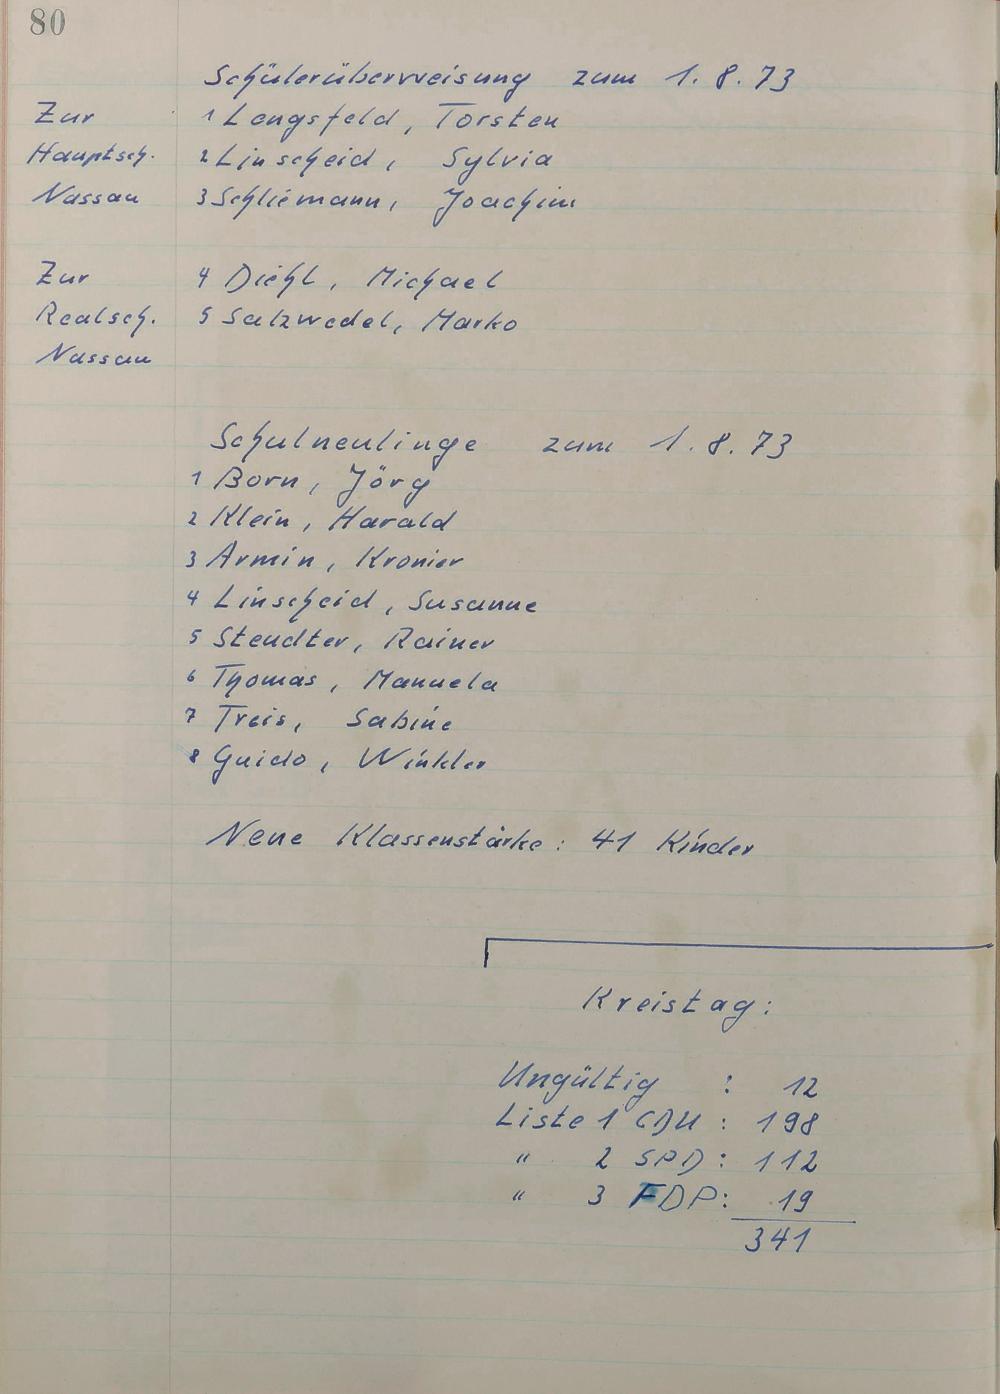 80
Schülerüberweisung zum 1.8.73
Zur 1 Lengsfeld, Torsten
Hauptsch. 2 Linscheid, Sylvia
Nassau 3 Schliemann, Joachim
Zur 4 Diehl, Michael
Realsch. 5 Salzwedel, Marko
Nassau
Schulneulinge zum 1.8.73
1 Born, Jörg
2 Klein, Harald
3 Armin, Kronier
4 Linscheid, Susanne
5 Steudter, Rainer
6 Thomas, Manuela
7 Treis, Sabine
8 Guido, Winkler
Neue Klassenstärke: 41 Kinder
Kreistag:
Ungültig : 12
Liste 1 CDU : 198
" 2 SPD : 112
" 3 FDP: 19
341